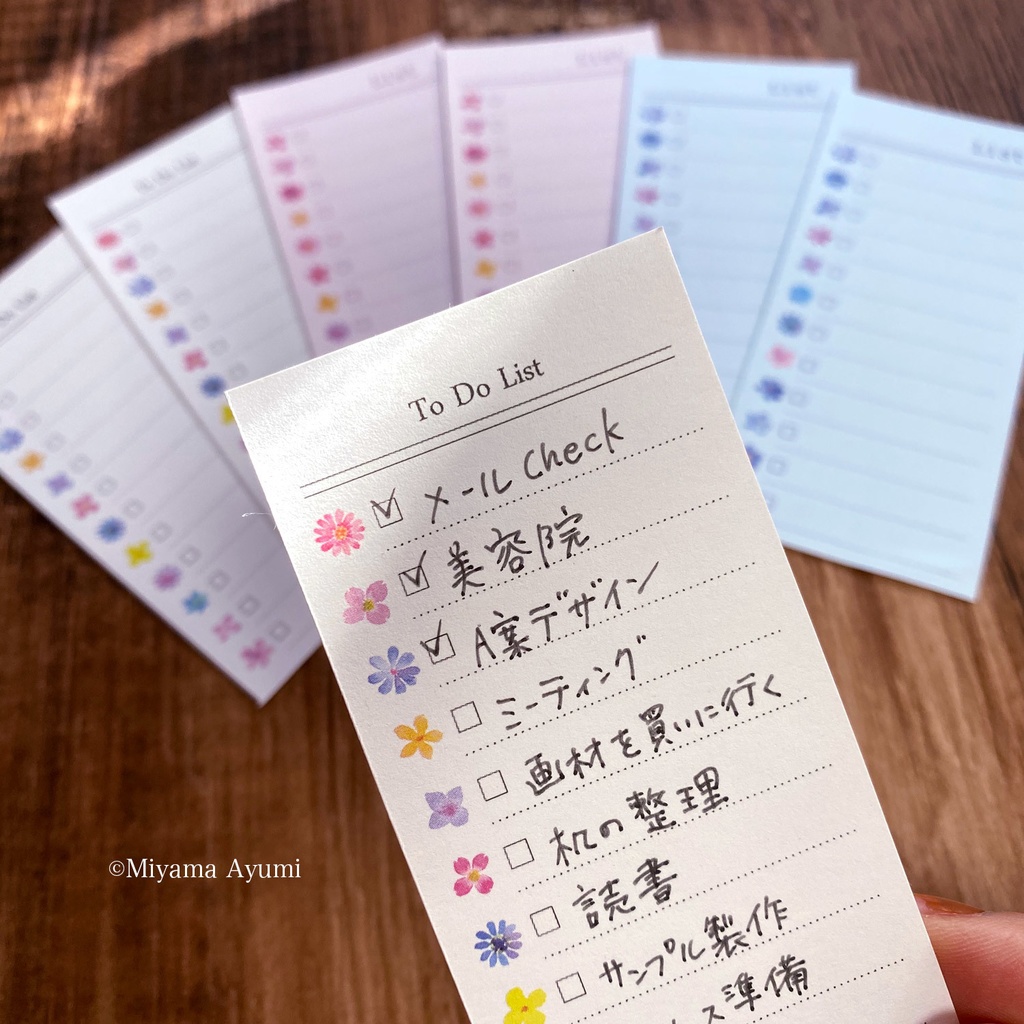 To Do List
メールCheck
美容院
A案デザイン
ミーティング
画材を買いに行く
机の整理
読書
サンプル製作
ス準備
©Miyama Ayumi